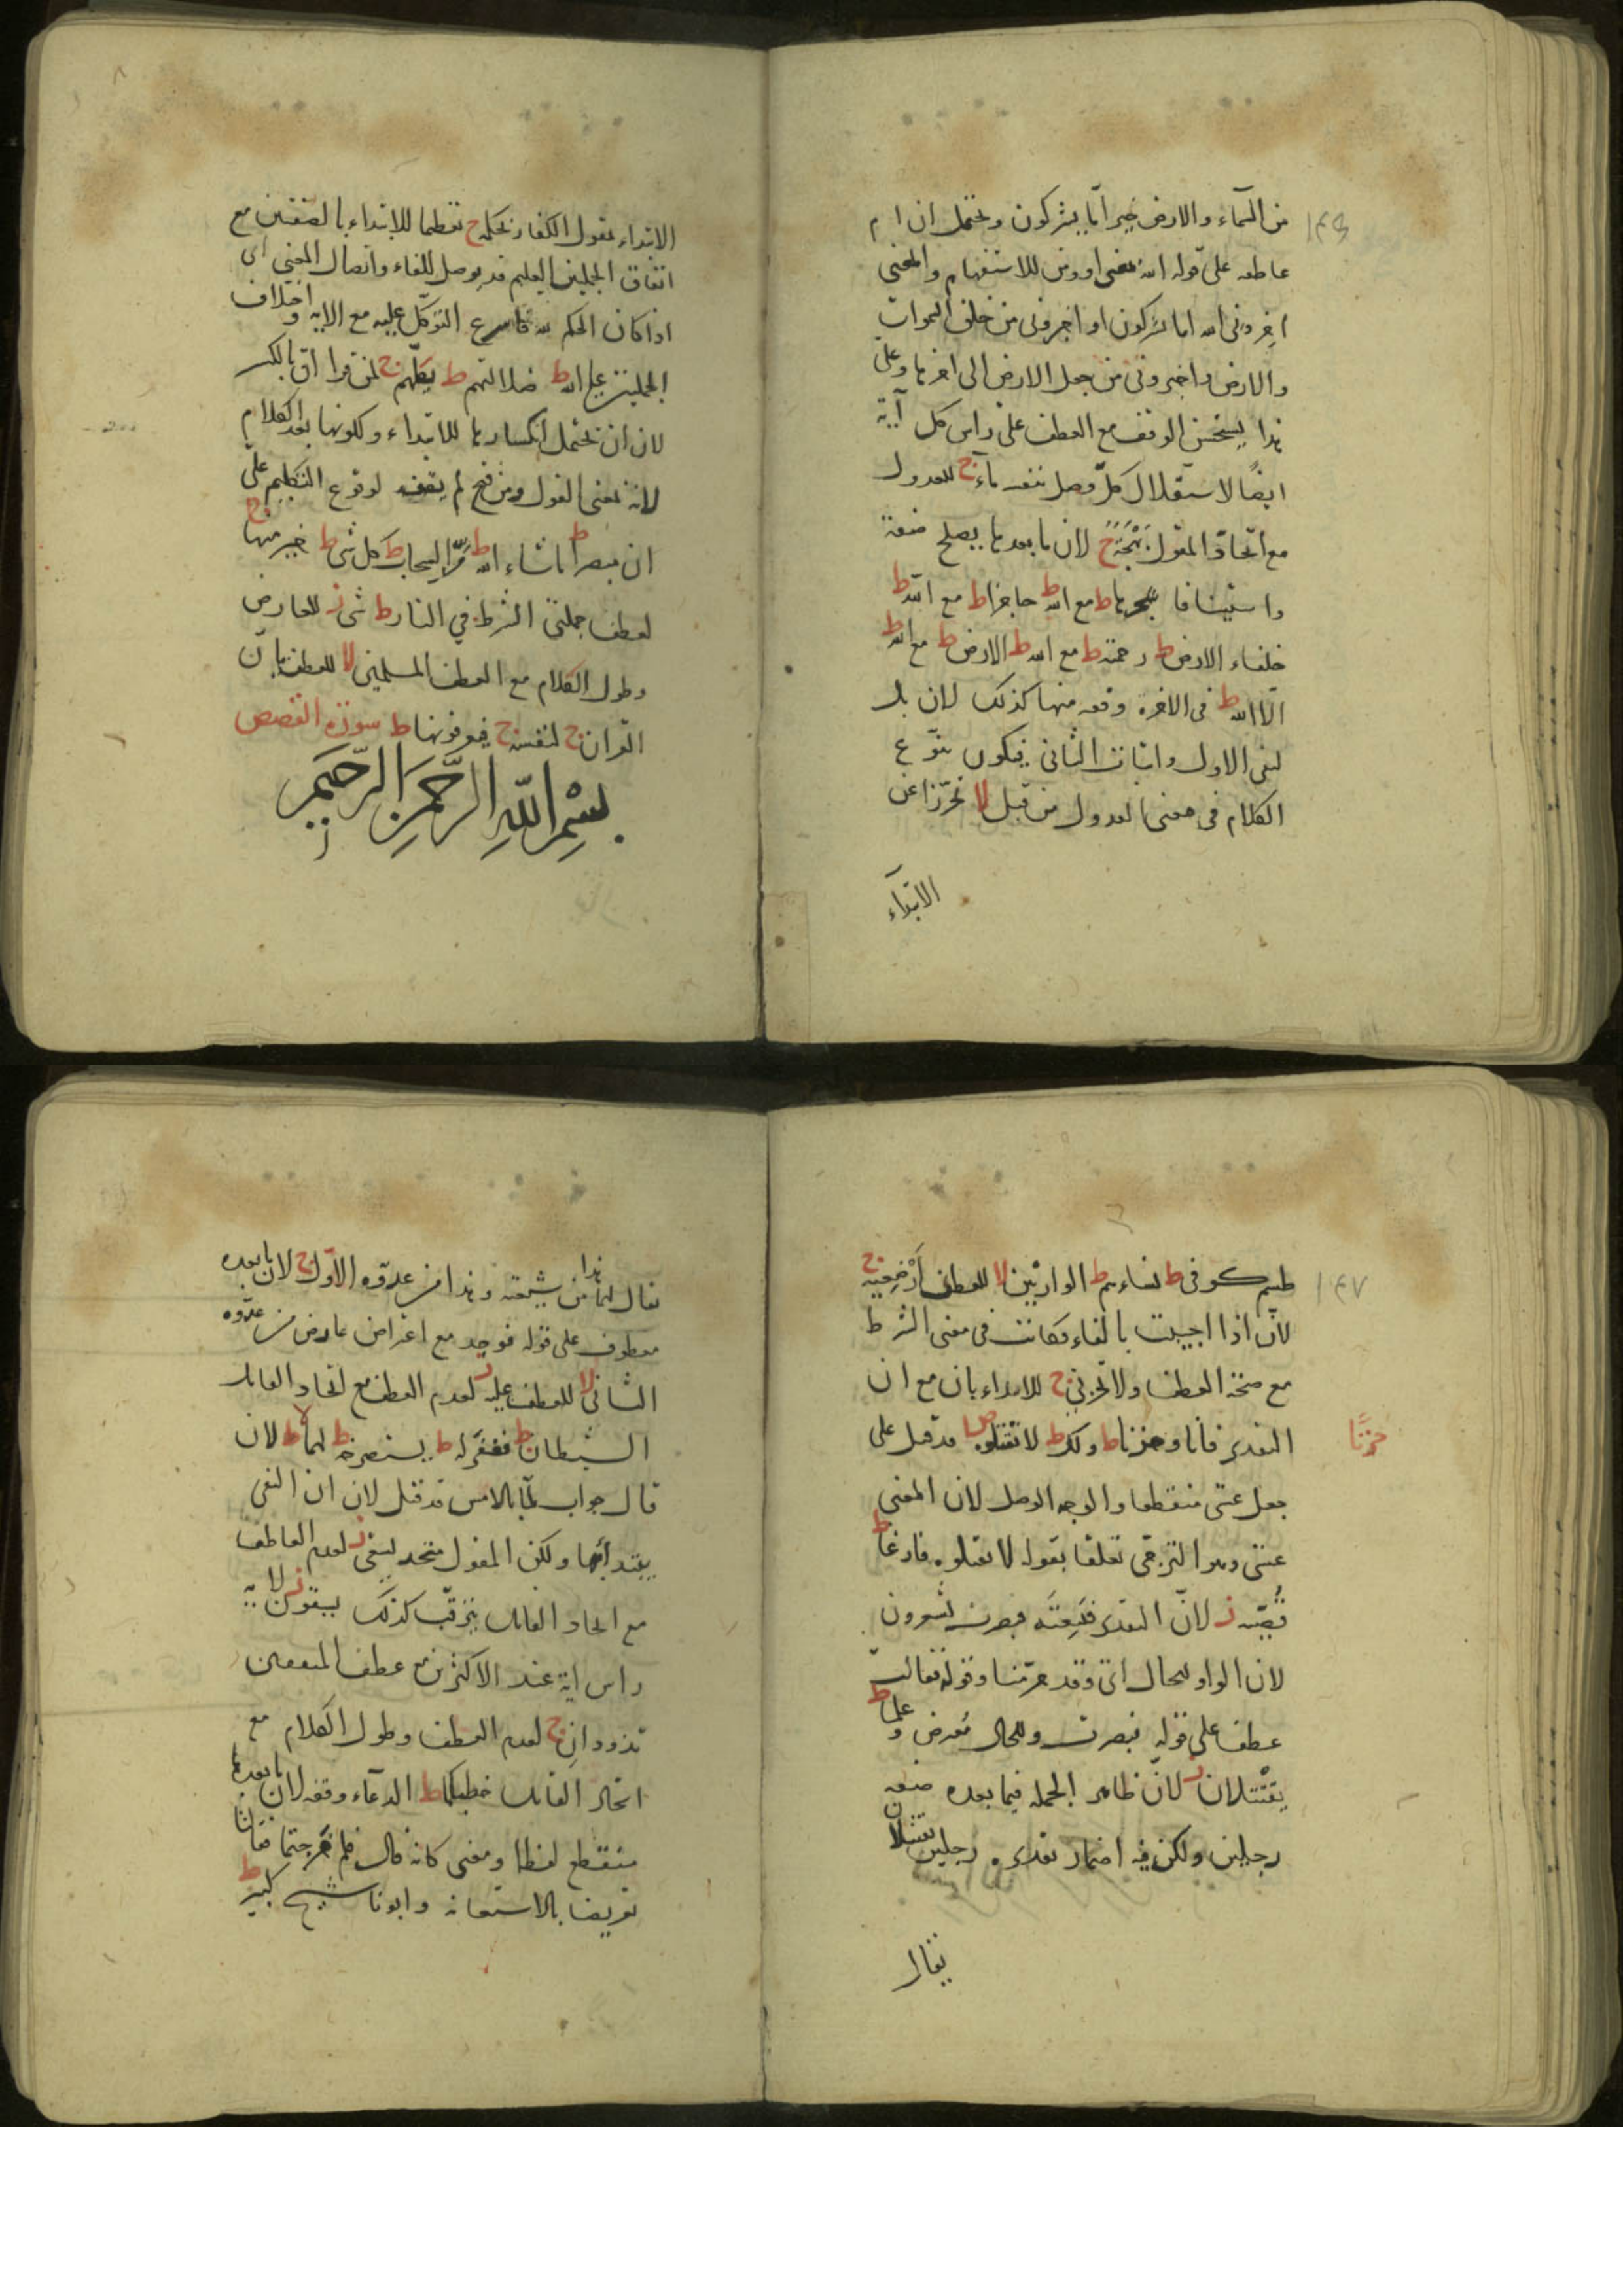 ١٤٦
من السماء والارض خير امّا يشركون ويحتمل ان ام
عاطفه على قوله الله بمعنى او ومن للاستفهام والمعنى
اخبرونى الله اما تشركون او اخبرونى من خلق السموات
والارض واخبرونى من جعل الارض الى اخرها وعلى
هذا يستحسن الوقف مع العطف على راس كل آية
ايضًا لاستقلال كلّ فصل بنفسه ماء ج للعدول
مع اتحاد المقول بَهْجَةٍ ج لان ما بعدها يصلح صفة
واستينافا شجرها ط مع الله ط حاجزا ط مع الله ط
خلفاء الارض ط رحمته ط مع الله ط الارض ط مع الله ط
الّا الله ط فى الاخرة وقفه منها كذلك لان بل
لنفى الاول واثبات الثانى فيكون نوع
الكلام فى معنى العدول من قبل لا تحرّزا عن
الابتدآء
الابتداء بقول الكفار بحكمه ج تعظيما للابتداء بالصفتين مع
اتفاق الجملتين العليم قد يوصل للفاء واتصال المعنى اى
اذا كان الحكم لله فاسرع التوكّل عليه مع الايه واختلاف
الجملتين على الله ط ضلالتهم ط تكلّمهم ج لمن قرا انّ بالكسر
لان ان تحتمل انكسارها للابتداء وكونها بعد الكلام
لانه بمعنى القول ومن فتح لم يقف لوقوع التكليم على
ان مبصرا ط ما شاء الله ط مرّ السحاب ط كل شى ط خير منها ج
لعطف جملتى الشرط فى النار ط شى ز للعارض
وطول الكلام مع العطف المسلمين لا للعطف بان
القران ج لنفسه ج فتعرفونها ط سورة القصص
بِسْمِ اللّٰهِ الرَّحْمٰنِ الرَّحِيمِ
١٤٧
طسم كوفى ط نساءهم ط الوارثين لا للعطف أَرْضِعيه ج
لانّ اذا اجيبت بالفاء فكانت فى معنى الشرط
مع صحة العطف ولا تحزنى ج للابتداء بان مع ان
التقدير فانا وحزنا ط ولك ط لا تقتلوه صل قد قيل على
حَزَنًا
جعل عسى منقطعا والوجه الوصل لان المعنى
عسى وهو الترجّى تعلقا بقوله لا تقتلوه فارغا ط
قُصّيه ز لانّ التقدير فتبعته فبصرت يشعرون
لان الواو للحال اى وقد حرّمنا وقوله فقالت
عطف على قوله فبصرت والحال معرض وعلما ط
يقتتلان ز لانّ ظاهر الجملة فيما بعده صفه
رجلين ولكن فيه اضمار تقديره رجلين يقتتلان
يقال
يقال لهما هذا من شيعته وهذا من عدوّه الاوّل ج لان ما بعده
معطوف على قوله فوجد مع اعتراض عارض من عدوّه
الثانى لا للعطف عليه ز لعدم العطف مع اتحاد القايل
الشيطان ط فغفر له ط يستصرخه ط لهما لا ط لان
قال جواب لمّا بالامس قد قيل لان ان النفى
يبتدا بها ولكن المقول متحد يسعى ز لعدم العاطف
مع اتحاد القايل يترقّب كذلك يسقون لا لانه
راس اية عند الاكثر من مع عطف المتفقين
تذودان ج لعدم العطف وطول الكلام مع
اتحاد القايل خطبكما ط الدعآء وقفه لان ما بعدها
منقطع لفظا ومعنى كانه قال فلم خرجتما فقالتا
تعريضا بالاستعانه وابونا شيخ كبير ط